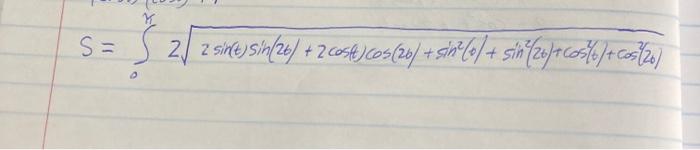 S = ∫₀^π 2√(2 sin(t) sin(2t) + 2 cos(t) cos(2t) + sin²(t) + sin²(2t) + cos²(t) + cos²(2t))